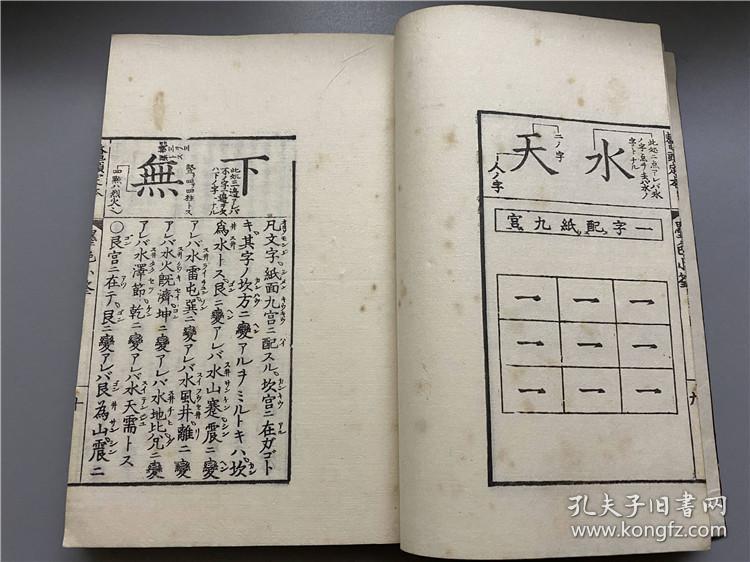 水
天
二ノ字
人ノ字
一字配紙九宮
一 一 一
一 一 一
一 一 一
下
無
竪ノ四ハ四柱トス
四點ハ烈火ヘン
凡文字紙面九宮ニ配スル坎宮ニ在ガゴト
キ其字ノ坎方ニ變アルヲミルトキハ坎
為水トス艮ニ變アレバ水山蹇震ニ變
アレバ水雷屯巽ニ變アレバ水風井離ニ變
アレバ水火既濟坤ニ變アレバ水地比兌ニ變
アレバ水澤節乾ニ變アレバ水天需トス
〇艮宮ニ在テ艮ニ變アレバ艮為山震ニ
九
十
孔夫子旧书网
www.kongfz.com